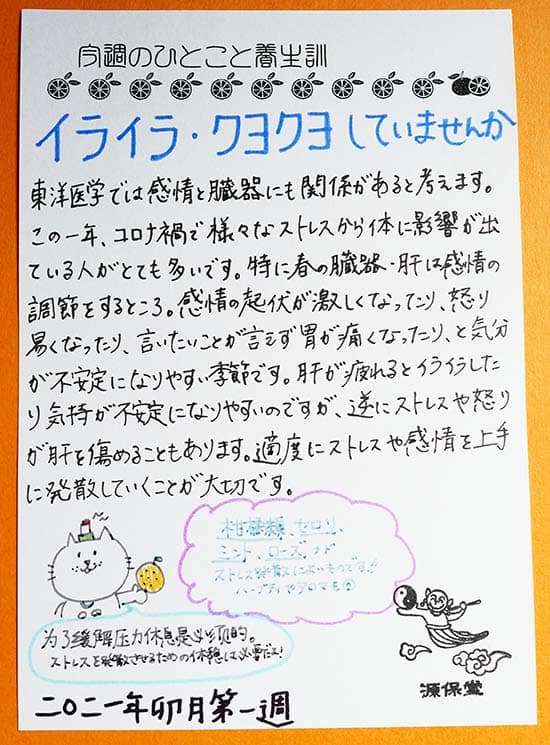 今週のひとこと養生訓
イライラ・クヨクヨしていませんか
東洋医学では感情と臓器にも関係があると考えます。
この一年、コロナ禍で様々なストレスから体に影響が出
ている人がとても多いです。特に春の臓器・肝は感情の
調節をするところ。感情の起伏が激しくなったり、怒り
易くなったり、言いたいことが言えず胃が痛くなったり、と気分
が不安定になりやすい季節です。肝が疲れるとイライラした
り気持が不安定になりやすいのですが、逆にストレスや怒り
が肝を傷めることもあります。適度にストレスや感情を上手
に発散していくことが大切です。
柑橘類、セロリ、
ミント、ローズが
ストレス発散によいものです!!
ハーブティやアロマも
为了缓解压力休息是必须的。
ストレスを発散させるための休憩は必要だよ!
源保堂
二〇二一年卯月第一週